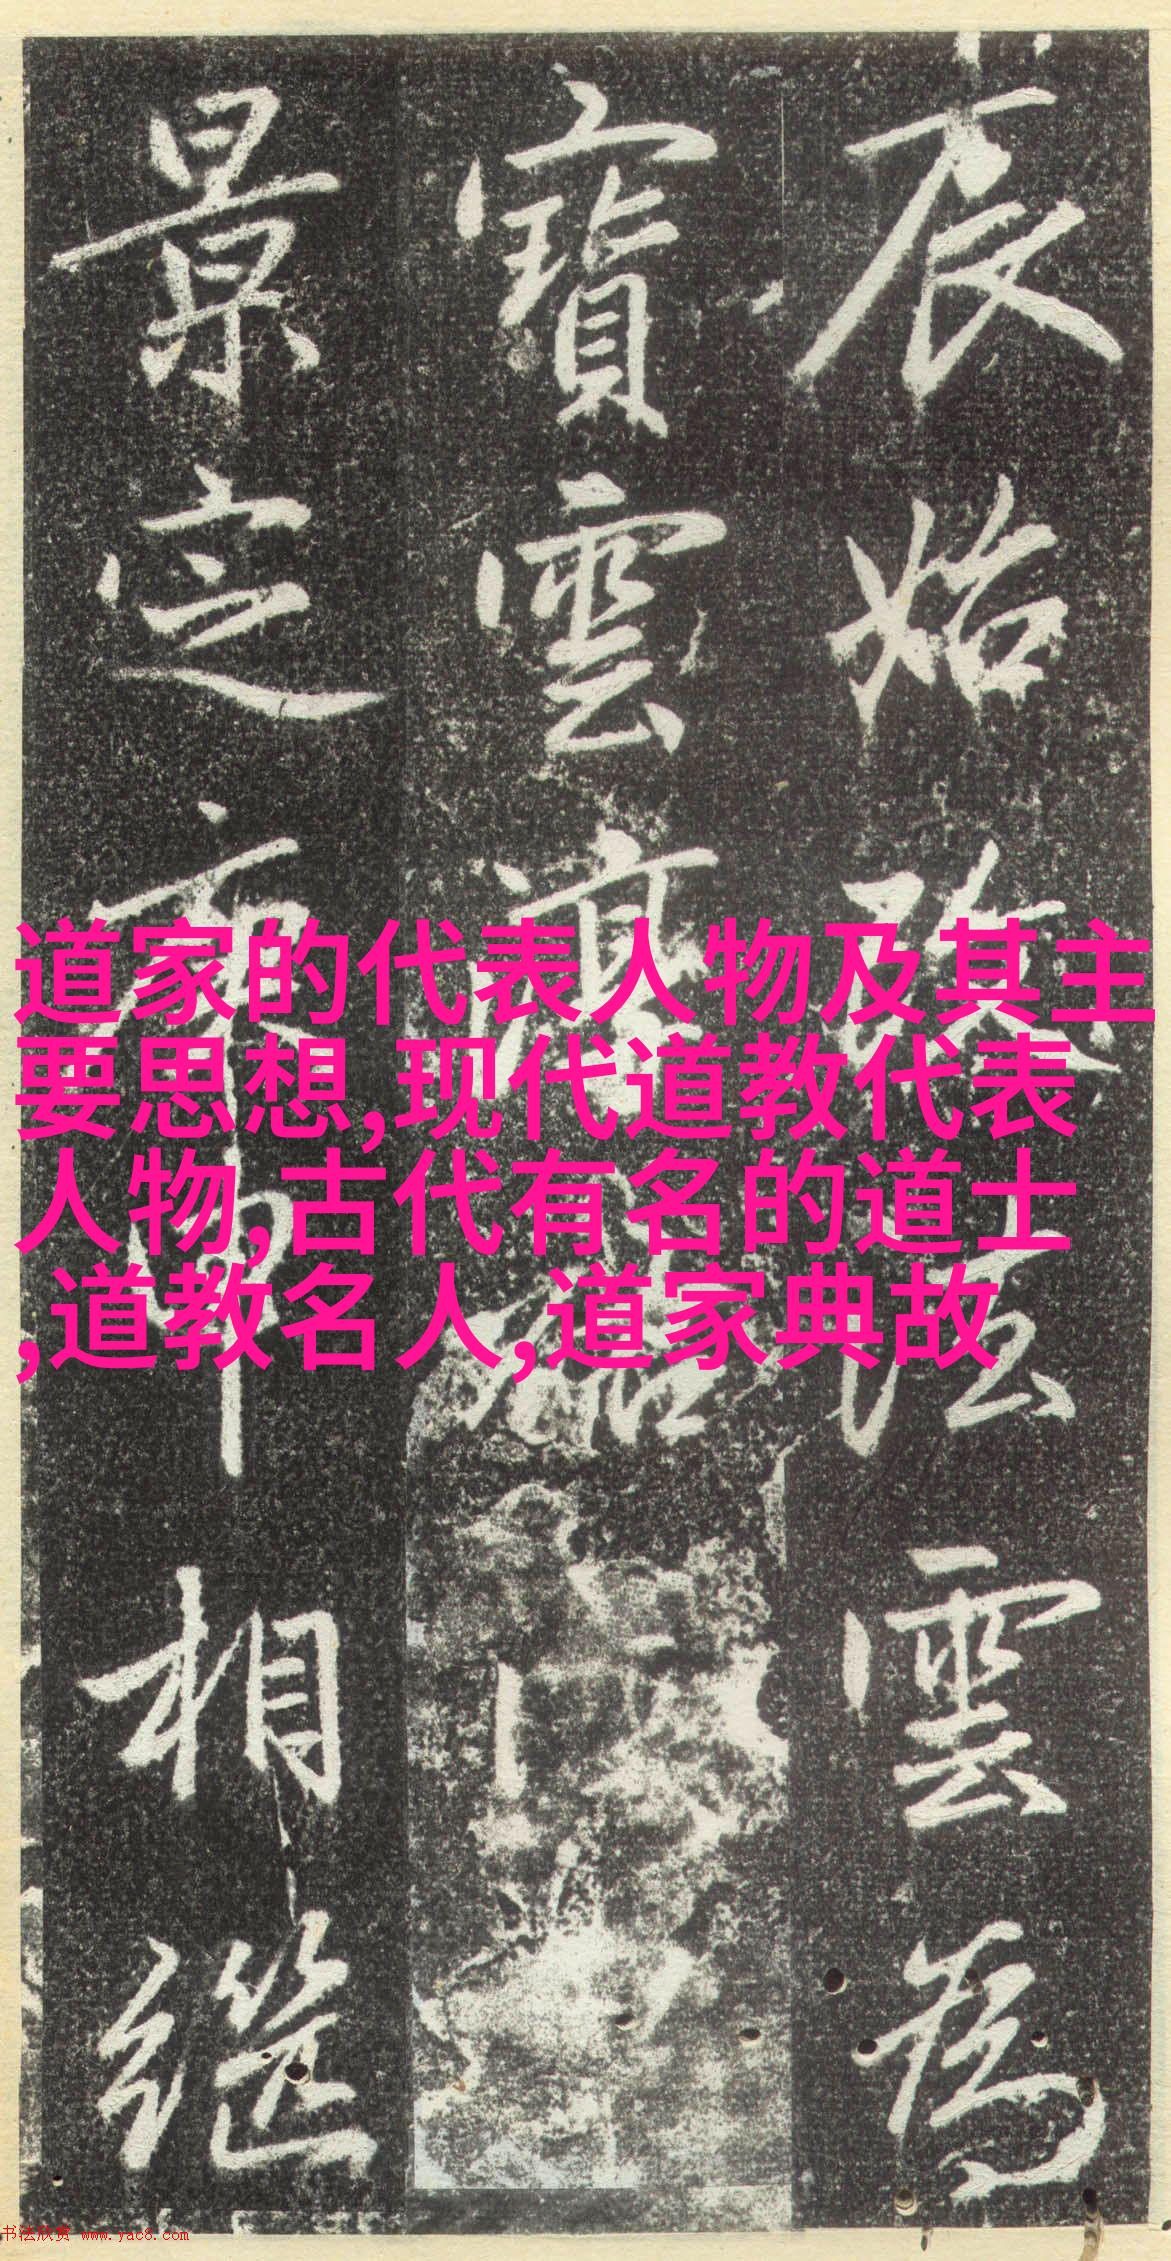 辰始法雲為
寶雲
景定相繼
道家的代表人物及其主
要思想,现代道教代表
人物,古代有名的道士
,道教名人,道家典故
书法欣赏 www.yac8.com